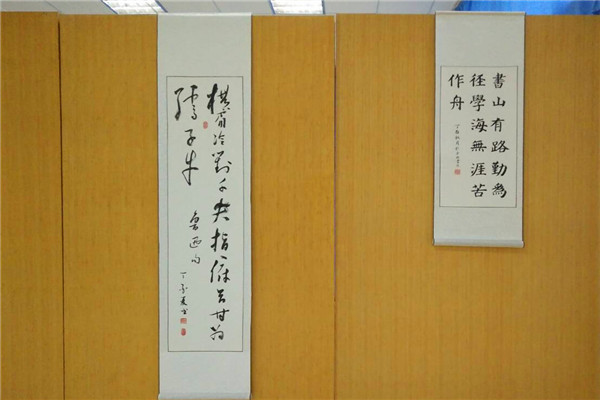 横眉冷對千夫指俯首甘为
孺子牛
魯迅句
丁亥夏书
書山有路勤為
径學海無涯苦
作舟